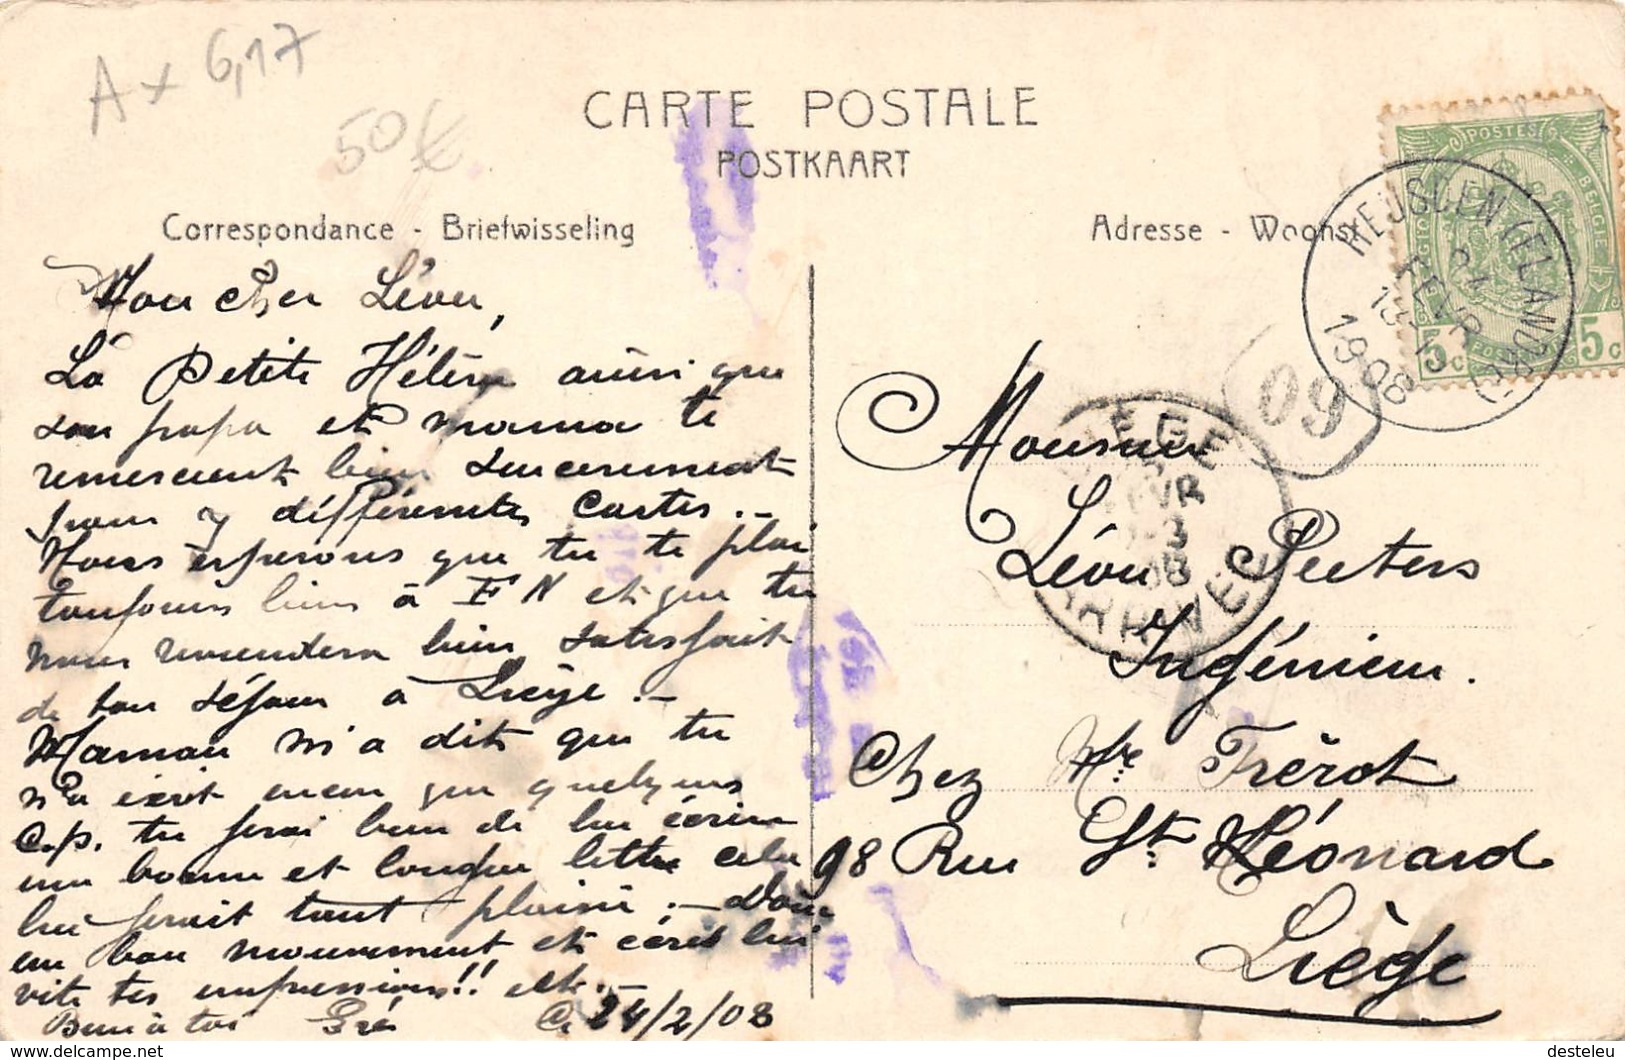 A x 6,17
50€
CARTE POSTALE
POSTKAART
Correspondance - Briefwisseling
Adresse - Woonst
POSTES
BELGIQUE BELGIE
5c 5c
HEUSDEN (FLANDRE)
FEVR
1908
09
LIEGE
FEVR
08
ARRIVEE
Mon cher Léon,
La Petite Hélène ainsi que
son papa et mama te
remercient bien sincerement
pour y différentes cartes.-
Nous esperons que tu te plai
toujours bien à FN et que tu
nous reviendera bien satisfait
de ton séjour à Liège.-
Maman m'a dit que tu
n'a écrit encor que quelques
c.p. tu ferai bien de lui écrire
une bonne et longue lettre cela
lui ferait tant plaisir.- Donc
un bon mouvement et écris lui
vite tes impressions!! etc.-
Bien à toi
24/2/08
Monsieur
Léon Peeters
Ingénieur.
Chez Mr Frérot
98 Rue St Léonard
Liège
© www.delcampe.net
desteleu